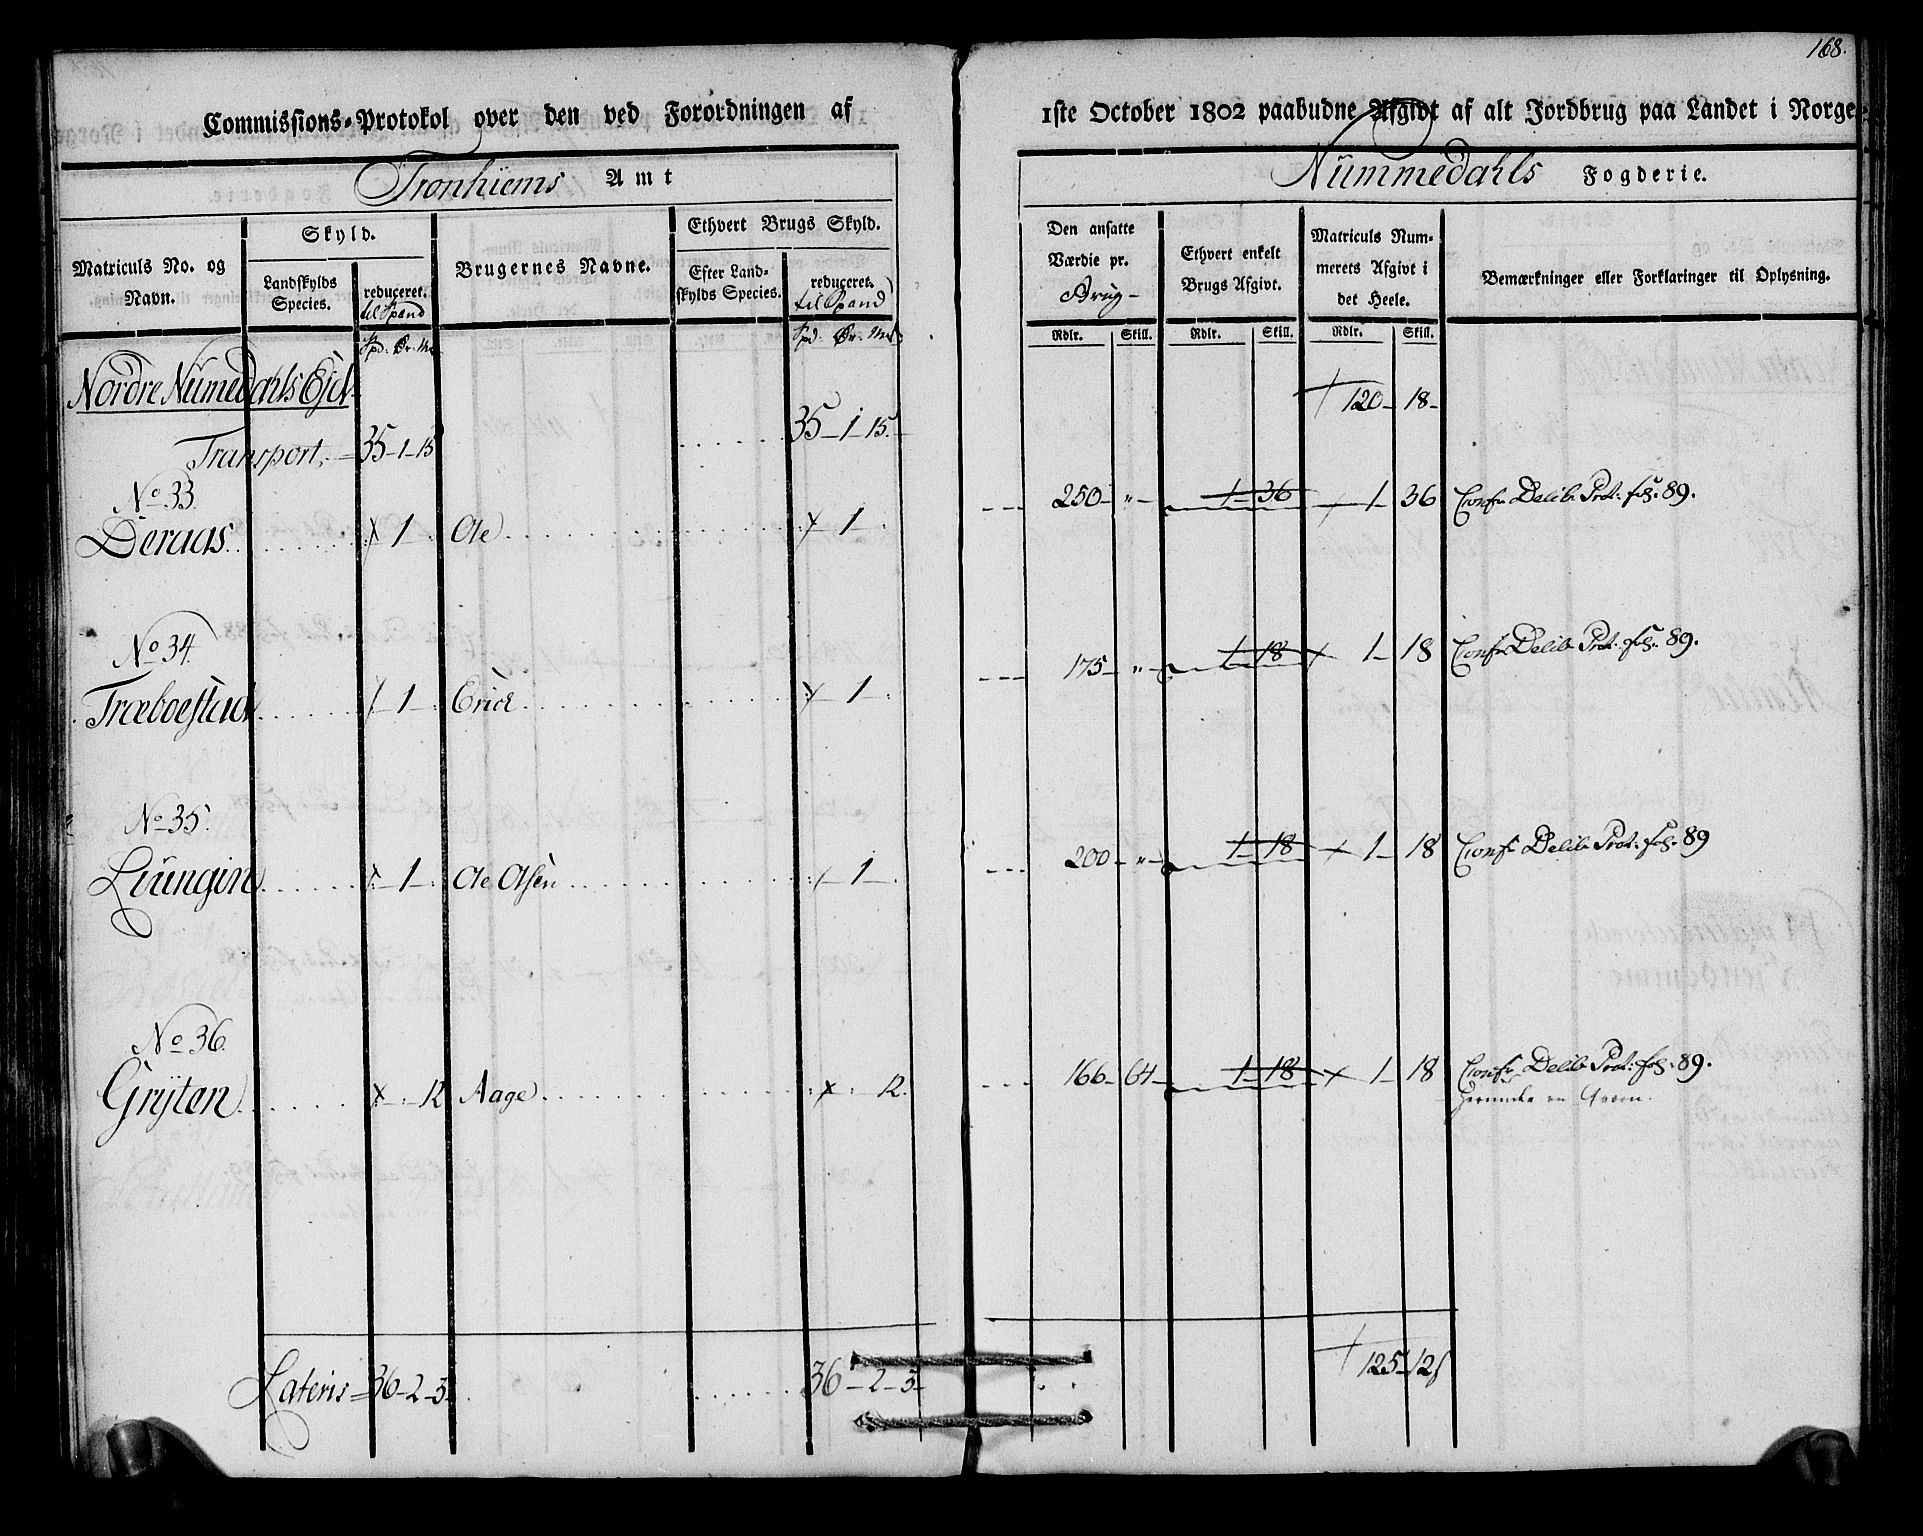 168.
Commissions-Protokol over den ved Forordningen af 1ste October 1802 paabudne Afgivt af alt Jordbrug paa Landet i Norge.
Tronhiems Amt
Nummedahls Fogderie.
Matriculs No. og Navn.
Skyld.
Landskylds Species.
reduceret.
til Spand
Spd. Ør. Mk.
Brugernes Navne.
Ethvert Brugs Skyld.
Efter Landskylds Species.
reduceret.
til Spand
Spd. Ør. Mk.
Den ansatte Værdie pr. Brug-
Rdlr. Skill.
Ethvert enkelt Brugs Afgivt.
Rdlr. Skill.
Matriculs Nummerets Afgivt i det Heele.
Rdlr. Skill.
Bemærkninger eller Forklaringer til Oplysning.
Nordre Numedahls
120 - 18 -
Transport, 35 - 1 - 15 35 - 1 - 15.
No 33.
Deraas 1 Ole 1 250 - " - 1 - 36 1 36 Confr Delib. Prot. fol. 89.
No 34.
Træboestad 1 Erick 1 175 - " - 1 - 18 1 - 18 Confr Delib. Prot. fol. 89.
No 35.
Liungin 1 Ole Olsen 1 200 - " - 1 - 18 1 - 18 Confr Delib. Prot. fol. 89
No 36.
Grÿten 12 Aage 12. 166 - 64 - 1 - 18 1 - 18 Confr Delib. Prot. fol. 89.
herunder en Qvern.
Lateris 36 - 2 - 3 36 - 2 - 3 - 125 - 12